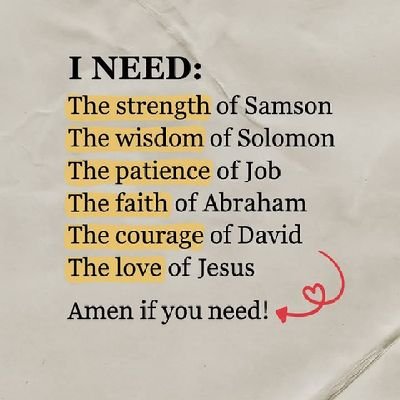 I NEED:
The strength of Samson
The wisdom of Solomon
The patience of Job
The faith of Abraham
The courage of David
The love of Jesus
Amen if you need!